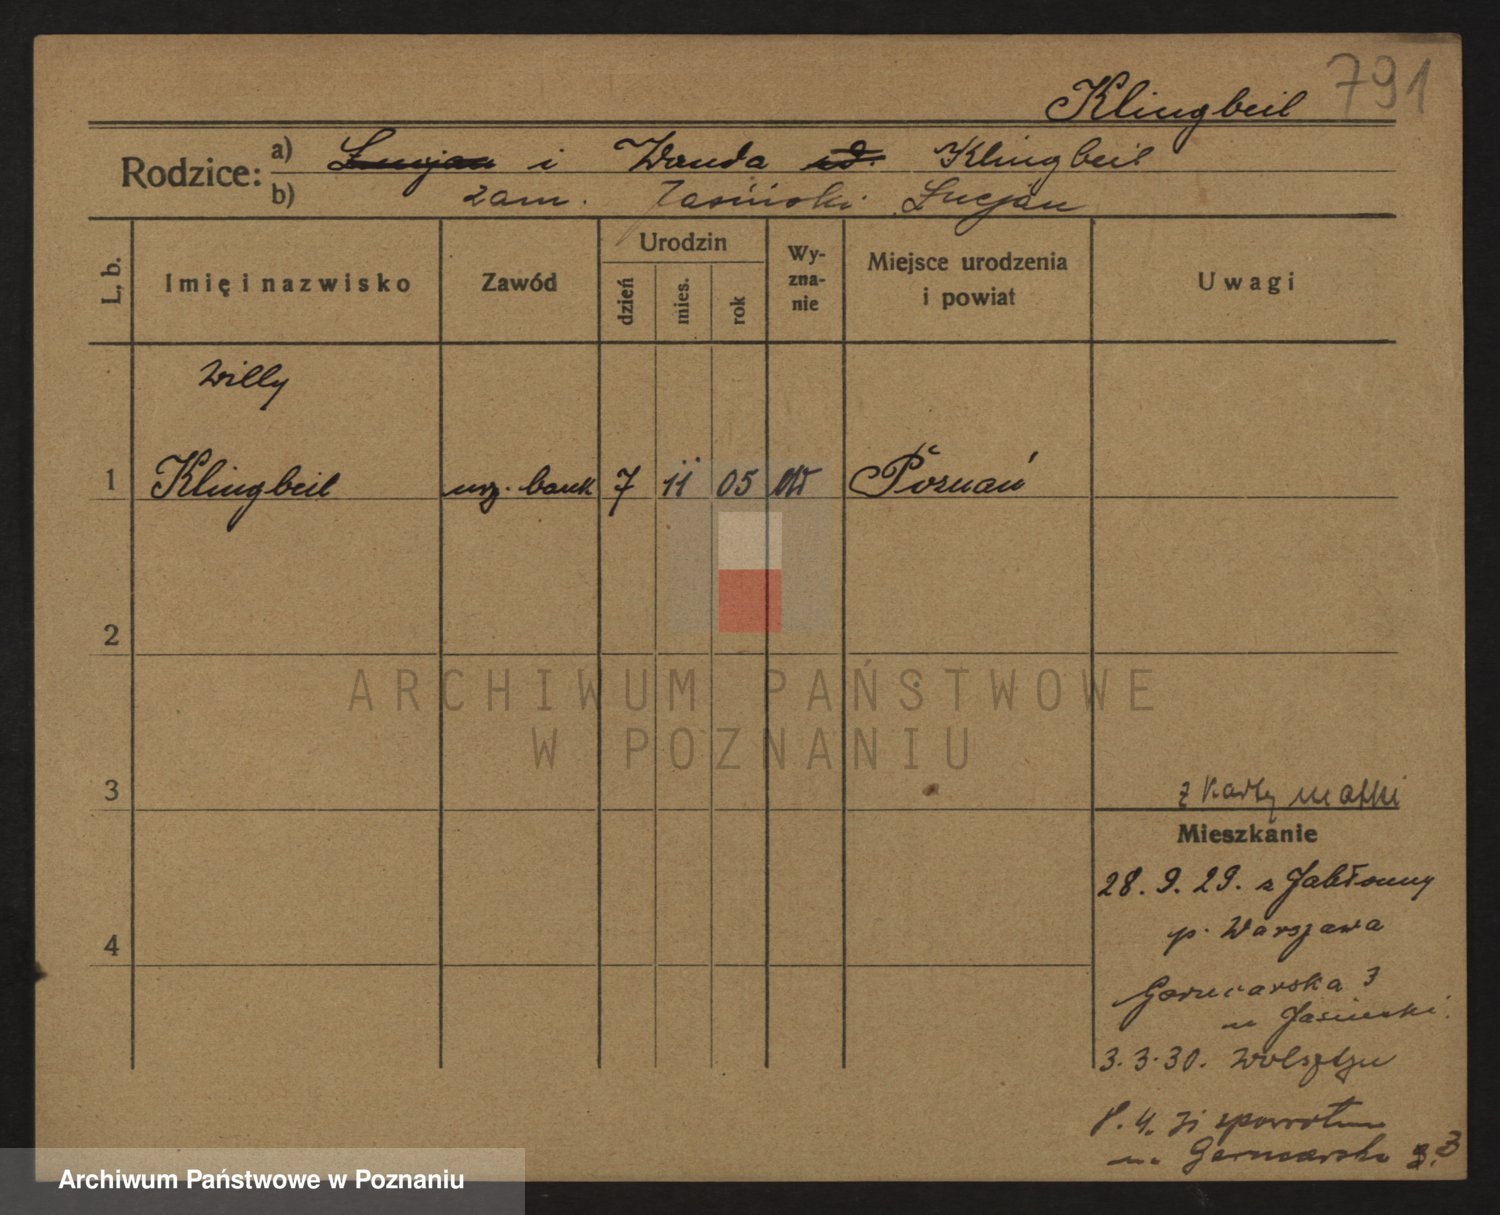 791
Klingbeil
Rodzice: a) Lucjan i Wanda Klingbeil
b) zam. Jasiński Lucjan
L. b.
Imię i nazwisko
Zawód
Urodzin
dzień
mies.
rok
Wy-
zna-
nie
Miejsce urodzenia
i powiat
Uwagi
Willy
1 Klingbeil urz. bank 7 11 05 Poznań
2
3
z karty matki
Mieszkanie
28. 9. 29. z Jabłonny
p. Warszawa
4
Garncarska 3
u Jasiński.
3. 3. 30. Wolsztyn
8. 4. 31 spowrotem
Garncarska 3
ARCHIWUM PAŃSTWOWE
W POZNANIU
Archiwum Państwowe w Poznaniu